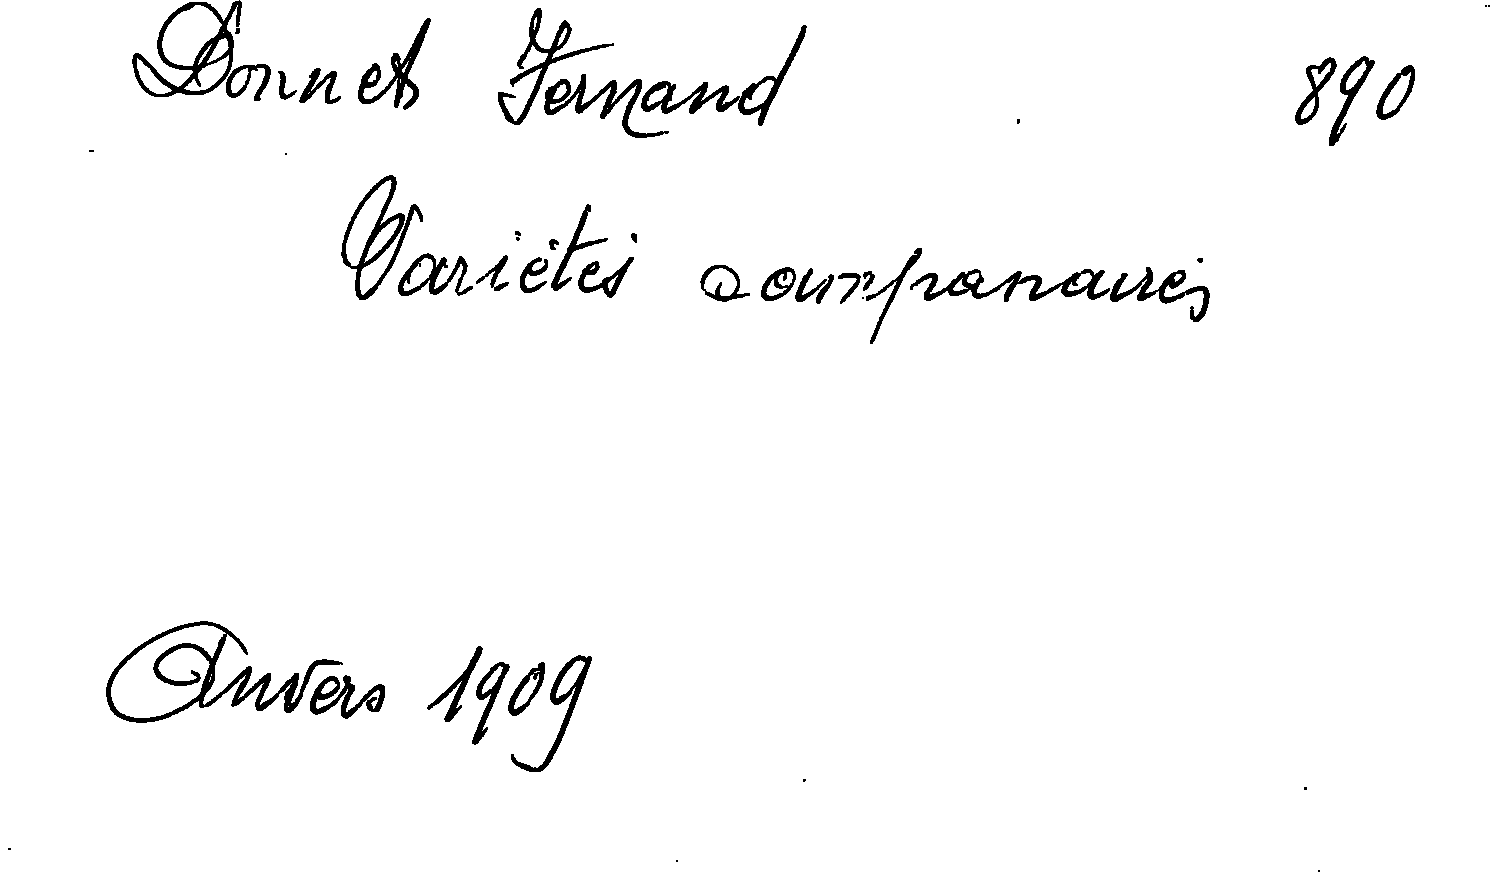 Donnet Fernand 890
Variétés campanaires
Anvers 1909